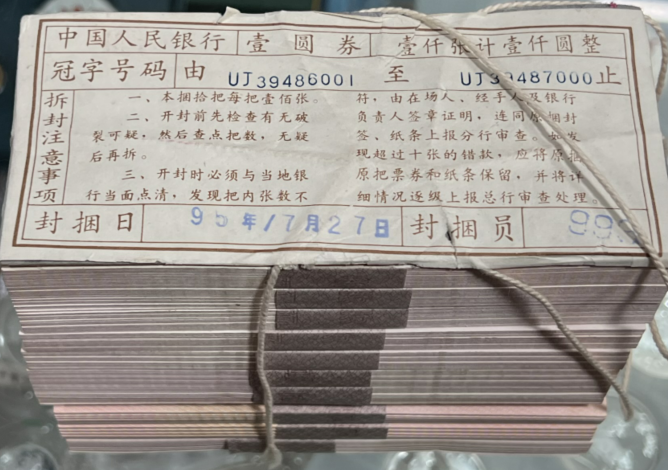 中国人民银行 壹圆券 壹仟张计壹仟圆整
冠字号码 由 UJ39486001 至 UJ39487000 止
拆封注意事项
一、本捆拾把每把壹佰张。
二、开封前先检查有无破
裂可疑，然后查点把数，无疑
后再拆。
三、开封时必须与当地银
行当面点清，发现把内张数不
符，由在场人、经手人及银行
负责人签章证明，连同原捆封
签、纸条上报分行审查。如发
现超过十张的错款，应将原捆
原把票券和纸条保留，并将详
细情况逐级上报总行审查处理。
封捆日 95年/7月27日 封捆员 99